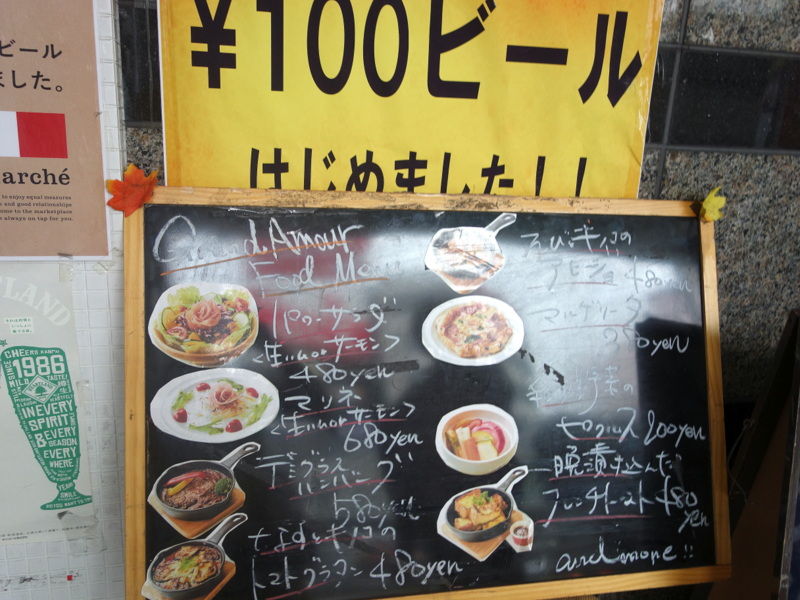 ¥100ビール
はじめました!!
ビール
ました。
arché
to enjoy equal measures
and good relationships
come to the marketplace
always on tap for you.
LAND
CHEERS KANPAI
1986
IN EVERY
SPIRIT
& EVERY
SEASON
EVERY
WHERE
YEAH!
SMILE
Grand Amour
Food Menu
パワーサラダ
<生ハムorサーモン>
480yen
マリネ
<生ハムorサーモン>
680yen
デミグラス
ハンバーグ
580yen
なすとキノコの
トマトグラタン480yen
えびとキノコの
アヒージョ480yen
マルゲリータ
980yen
野菜の
ピクルス200yen
一晩漬け込んだ
フレンチトースト480
yen
and more!!